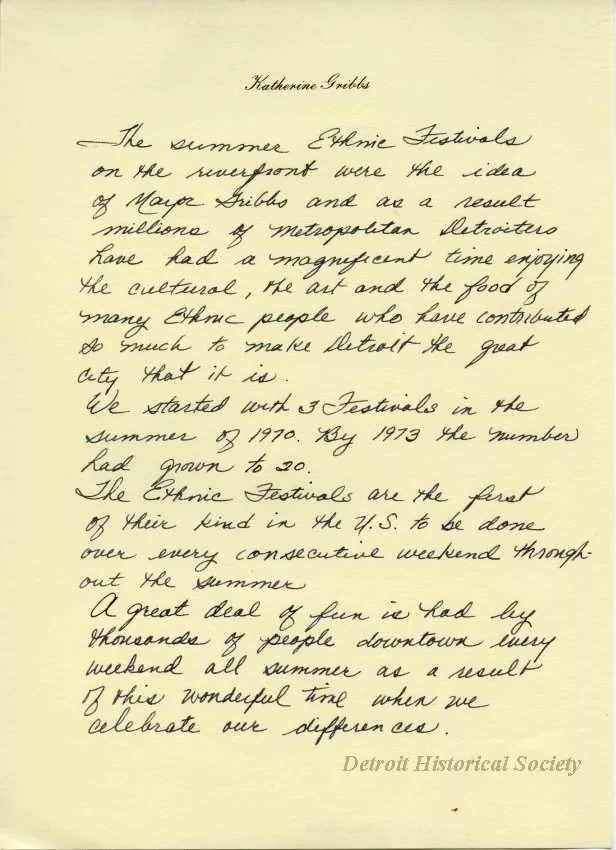 Katherine Gribbs
The summer Ethnic Festivals
on the riverfront were the idea
of Mayor Gribbs and as a result
millions of metropolitan Detroiters
have had a magnificent time enjoying
the cultural, the art and the food of
many Ethnic people who have contributed
so much to make Detroit the great
city that it is.
We started with 3 Festivals in the
summer of 1970. By 1973 the number
had grown to 20.
The Ethnic Festivals are the first
of their kind in the U.S. to be done
over every consecutive weekend through-
out the summer
A great deal of fun is had by
thousands of people downtown every
weekend all summer as a result
of this wonderful time when we
celebrate our differences.
Detroit Historical Society